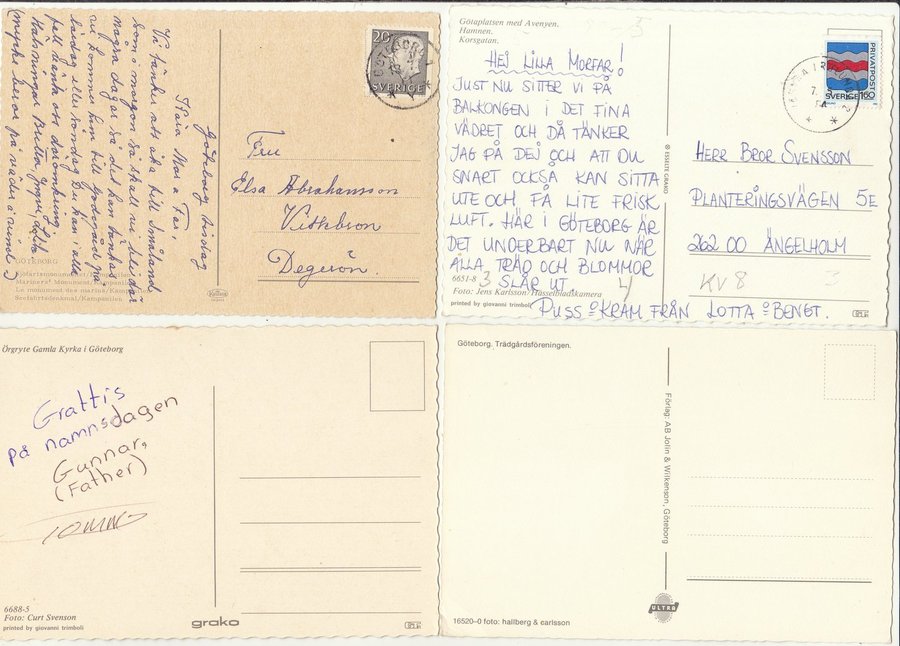 Göteborg tisdag
Kära Mor o Far,
Vi tänker att åka till Småland
som i morgon så skall vi bli där
några dagar så det kan
vi komma hem till Godegård på
lördag eller söndag. Du kan i alla
fall vänta oss däromkring.
Hälsningar Britta, Yngve, Lotta
(mycket beror på väder o vind.)
GÖTEBORG
Sjöfartsmonumentet/Kampanilen
Mariners' Monument/Kampanilen
Le monument des marins/Kampanilen
Seefahrtsdenkmal/Kampanilen
20
SVERIGE
GÖTEBORG 1
Fru
Elsa Abrahamsson
Vitkbron
Degerön.
Götaplatsen med Avenyen.
Hamnen.
Korsgatan.
HEJ LILLA MORFAR!
JUST NU SITTER VI PÅ
BALKONGEN I DET FINA
VÄDRET OCH DÅ TÄNKER
JAG PÅ DEJ OCH ATT DU
SNART OCKSÅ KAN SITTA
UTE OCH FÅ LITE FRISK
LUFT. HÄR I GÖTEBORG ÄR
DET UNDERBART NU NÄR
ALLA TRÄD OCH BLOMMOR
SLÅR UT.
PUSS O KRAM FRÅN LOTTA O BENGT.
6651-8 3 4
Foto: Jens Karlsson/Hasselbladskamera
printed by giovanni trimboli
© ESSELTE GRAKO
PRIVATPOST
SVERIGE 160
HERR BROR SVENSSON
PLANTERINGSVÄGEN 5E
262 00 ÄNGELHOLM
KV 8 3
Örgryte Gamla Kyrka i Göteborg
Grattis
på namnsdagen
Gunnar,
(Father)
6688-5
Foto: Curt Svenson
printed by giovanni trimboli
grako
Göteborg. Trädgårdsföreningen.
Förlag: AB Jolin & Wilkenson, Göteborg
ULTRA
16520-0 foto: hallberg & carlsson